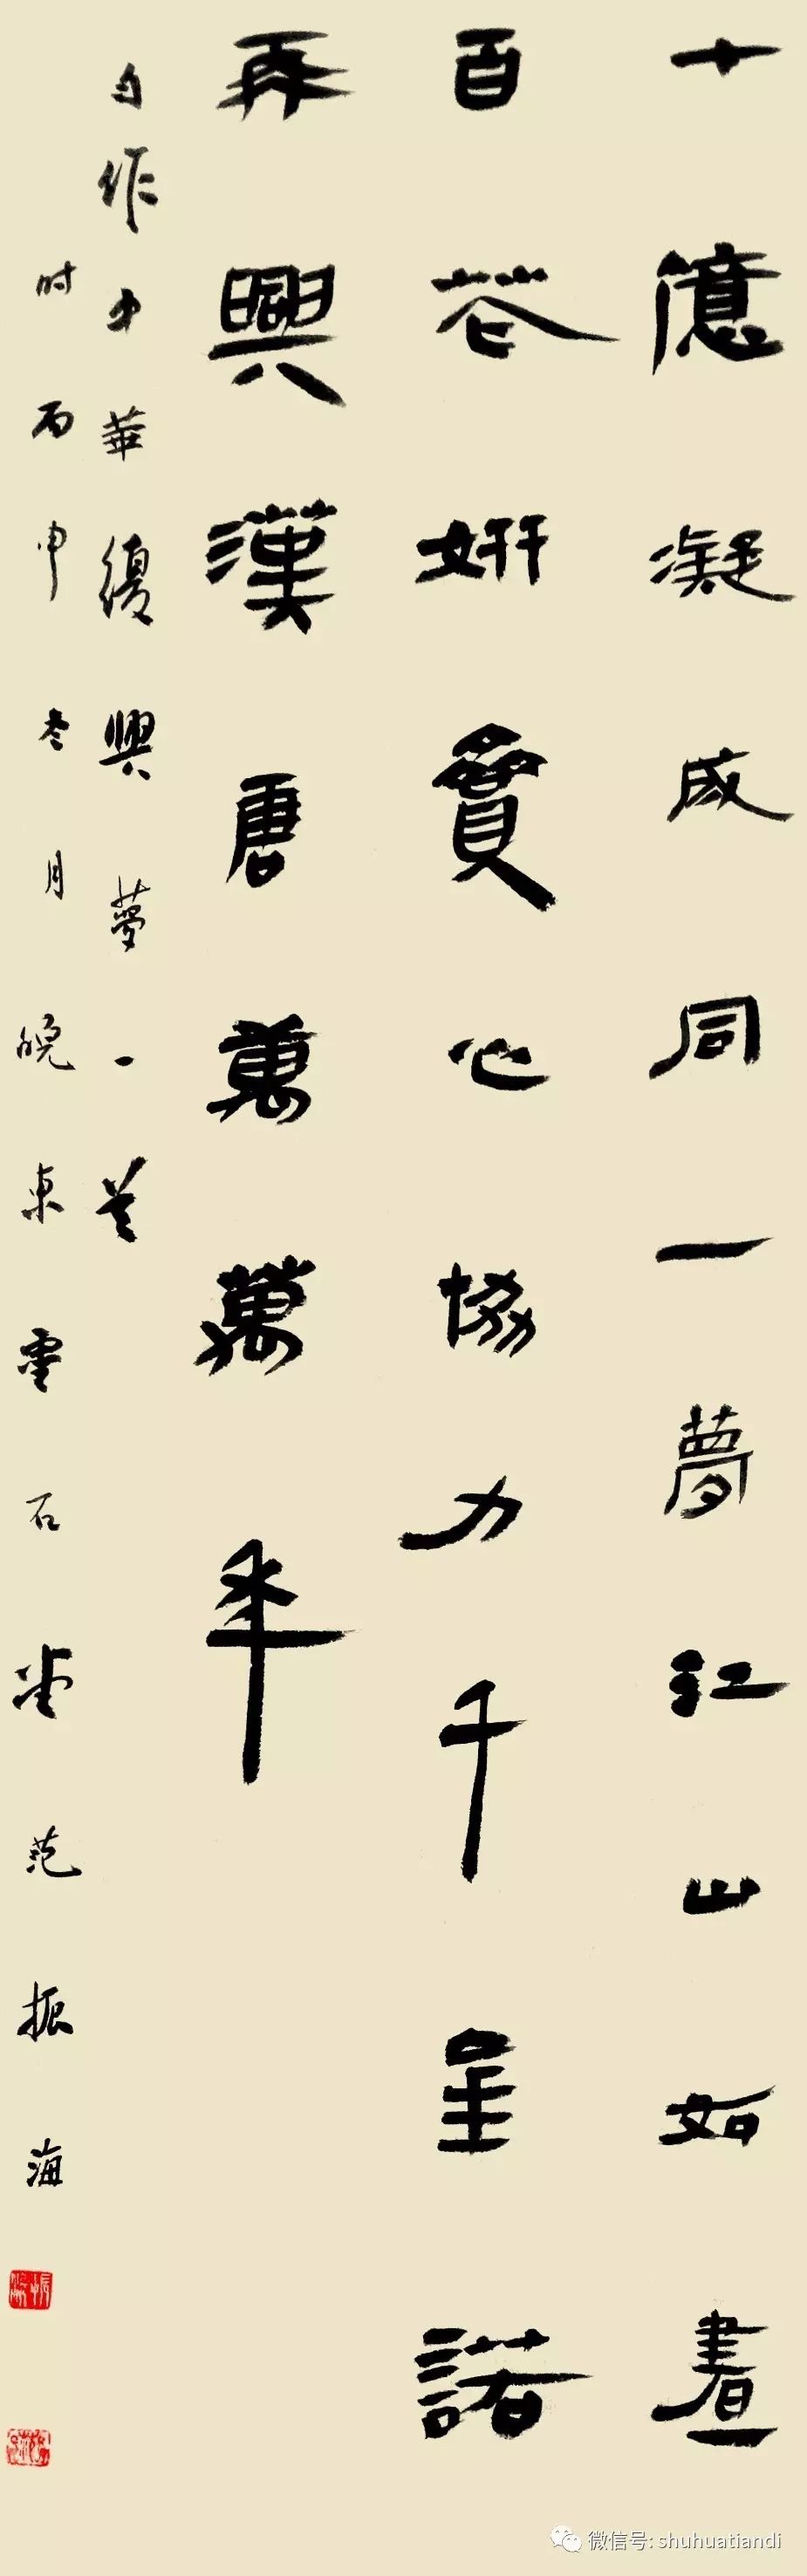 十億凝成同一夢紅山如畫
百花妍心協力千呈諾
再興漢唐萬萬年
自作中華復興夢一首
时丙申冬月晚東雲石堂范振海
微信号: shuhuatiandi